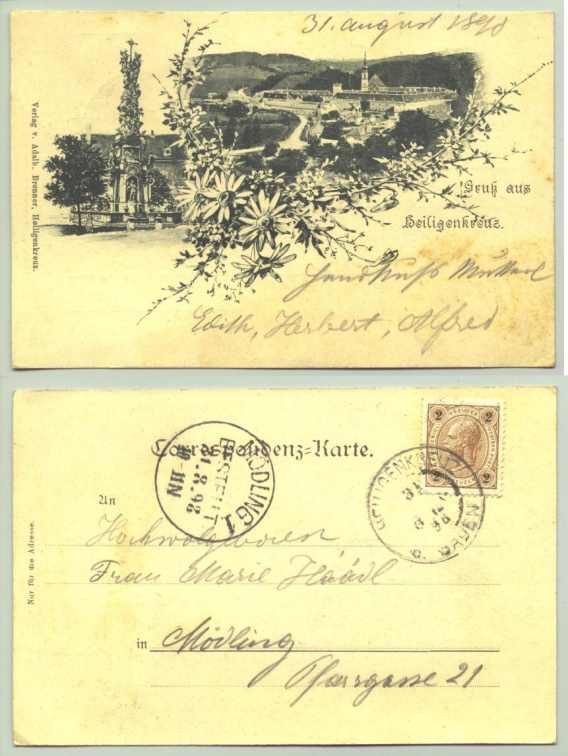 31. august 1898
Verlag v. Adalb. Brenner, Heiligenkreuz.
Gruß aus
Heiligenkreuz.
Handkuß Mutterl
Edith, Herbert, Alfred
2 2
2 2
Correspondenz-Karte.
MÖDLING 1
BESTELLT
31.8.98
HEILIGENKREUZ
B. BADEN
31 8
98
An
Hochwolgeboren
Frau Marie
in Mödling
Pfarrgasse 21
Nur für die Adresse.